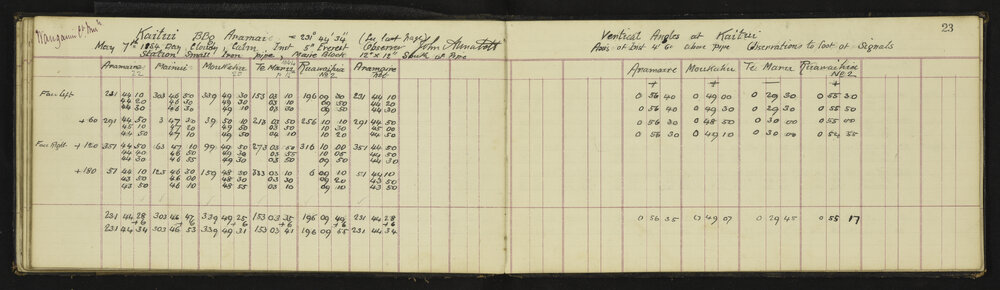 Kaitui BBo Aramaire = 231° 44' 34"
May 7th 1864 Day Cloudy, Calm, Inst 5" Everest Observer
Station Small Iron pipe, Maire Block 12" x 12"
Aramaire Mainui Moukahu Te Maru Ruawaihia Aramaire
22 20 No 2
Face Left 231 44 10 303 46 50 339 49 30 153 03 10 196 09 30 231 44 10
44 20 46 30 49 30 03 10 09 50 44 20
44 30 46 30 49 10 03 30 09 50 44 30
+60 291 44 50 3 47 30 39 50 10 213 03 50 256 10 10 291 44 50
45 10 47 20 49 50 03 50 10 30 45 00
44 50 47 10 49 50 04 10 10 20 44 50
Face Right +120 351 44 50 63 47 10 99 49 50 273 03 50 316 10 00 351 44 50
44 40 46 50 49 30 03 55 10 05 44 50
44 30 46 55 49 30 03 50 09 50 44 30
+180 51 44 10 123 46 30 159 48 50 333 03 10 6 09 10 51 44 10
43 50 46 00 48 30 03 30 09 20 43 50
43 50 46 10 48 55 03 10 09 10 43 50
231 44 28 303 46 47 339 49 25 153 03 35 196 09 49 231 44 28
+6 +6 +6 +6 +6 +6
231 44 34 303 46 53 339 49 31 153 03 41 196 09 55 231 44 34
23
Vertical Angles at Kaitui
Axis of Inst 4' 6" above pipe Observations to foot of Signals
Aramaire Moukahu Te Maru Ruawaihia
No 2
+ + — +
0 56 40 0 49 00 0 29 30 0 55 30
0 56 40 0 49 30 0 29 30 0 55 50
0 56 30 0 48 50 0 30 00 0 55 00
0 56 30 0 49 10 0 30 00 0 54 55
0 56 35 0 49 07 0 29 45 0 55 17